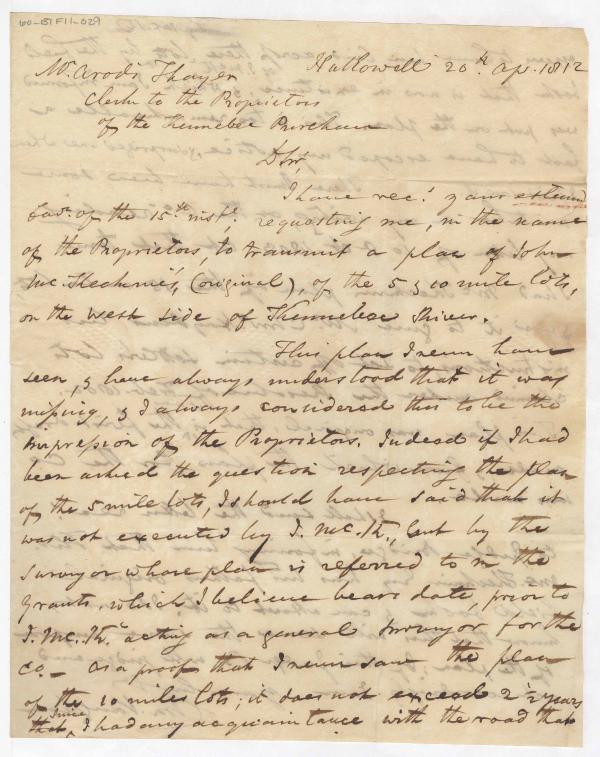 60-BVF11-029
Hallowell 20th. Ap. 1812
Mr. Arodi Thayer
Clerk to the Proprietors
of the Kennebec Purchase
D Sir
I have recd. your esteemed
favr. of the 15th inst., requesting me, in the name
of the Proprietors, to transmit a plan of John
McKechnie's, (original), of the 5 & 10 mile lots,
on the west side of Kennebec River.
This plan I never have
seen, & have always understood that it was
missing, & I always considered this to be the
impression of the Proprietors. Indeed if I had
been asked the question respecting the plan
of the 5 mile lots, I should have said that it
was not executed by J. McK., but by the
surveyor whose plan is referred to in the
Grants, which I believe bears date, prior to
J. McK. acting as a general surveyor for the
Co. — As a proof that I never saw the plan
of the 10 miles lots; it does not exceed 2 1/2 years
since
that, I had any acquaintance with the road that